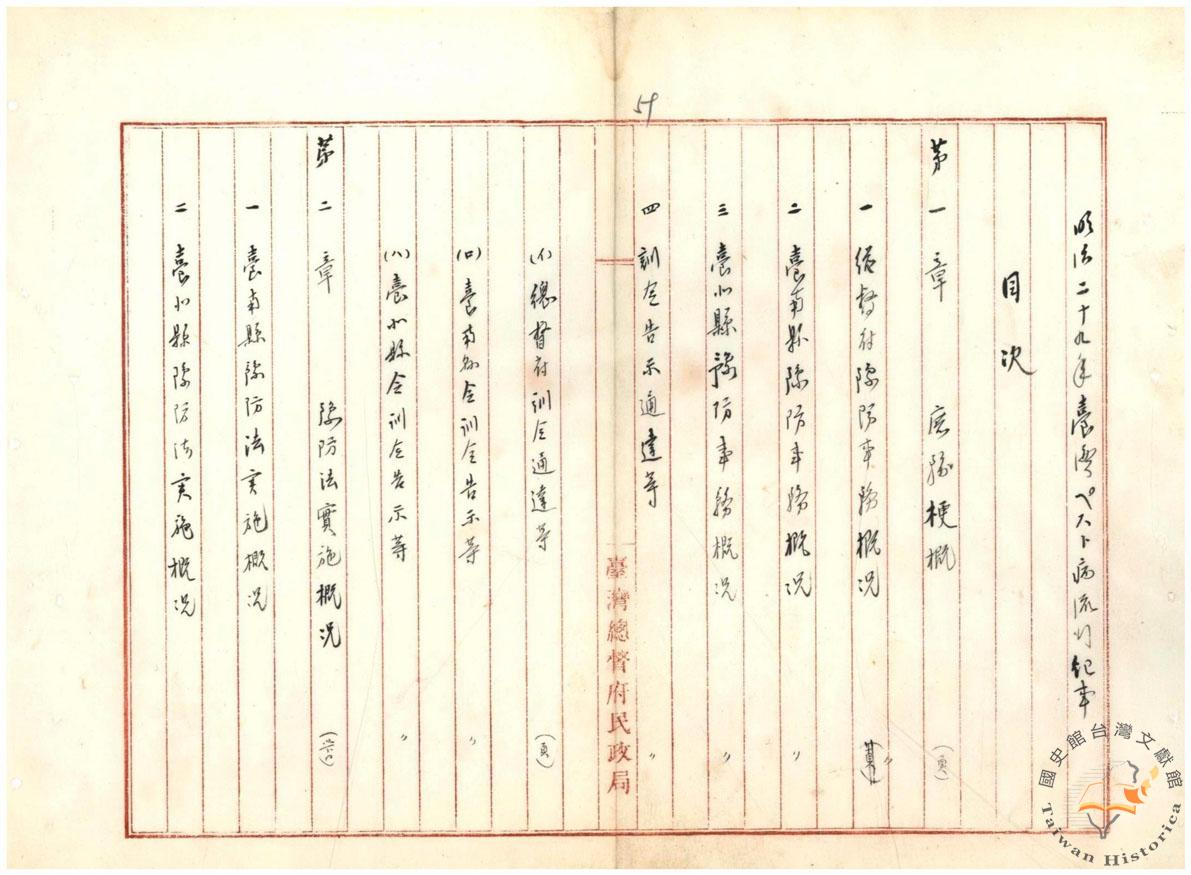 59
明治二十九年臺灣ペスト病流行紀事
目次
第一章 應務梗概 (頁)
一 總督府豫防事務概況 〃
二 臺南縣豫防事務概況 〃
三 臺北縣豫防事務概況 〃
四 訓令告示通達等 〃
(イ)總督府訓令通達等 (頁)
(ロ)臺南縣令訓令告示等 〃
(ハ)臺北縣令訓令告示等 〃
第二章 豫防法實施概況
一 臺南縣豫防法実施概況
二 臺北縣豫防法実施概況
臺灣總督府民政局
國史館台灣文獻館
Taiwan Historica